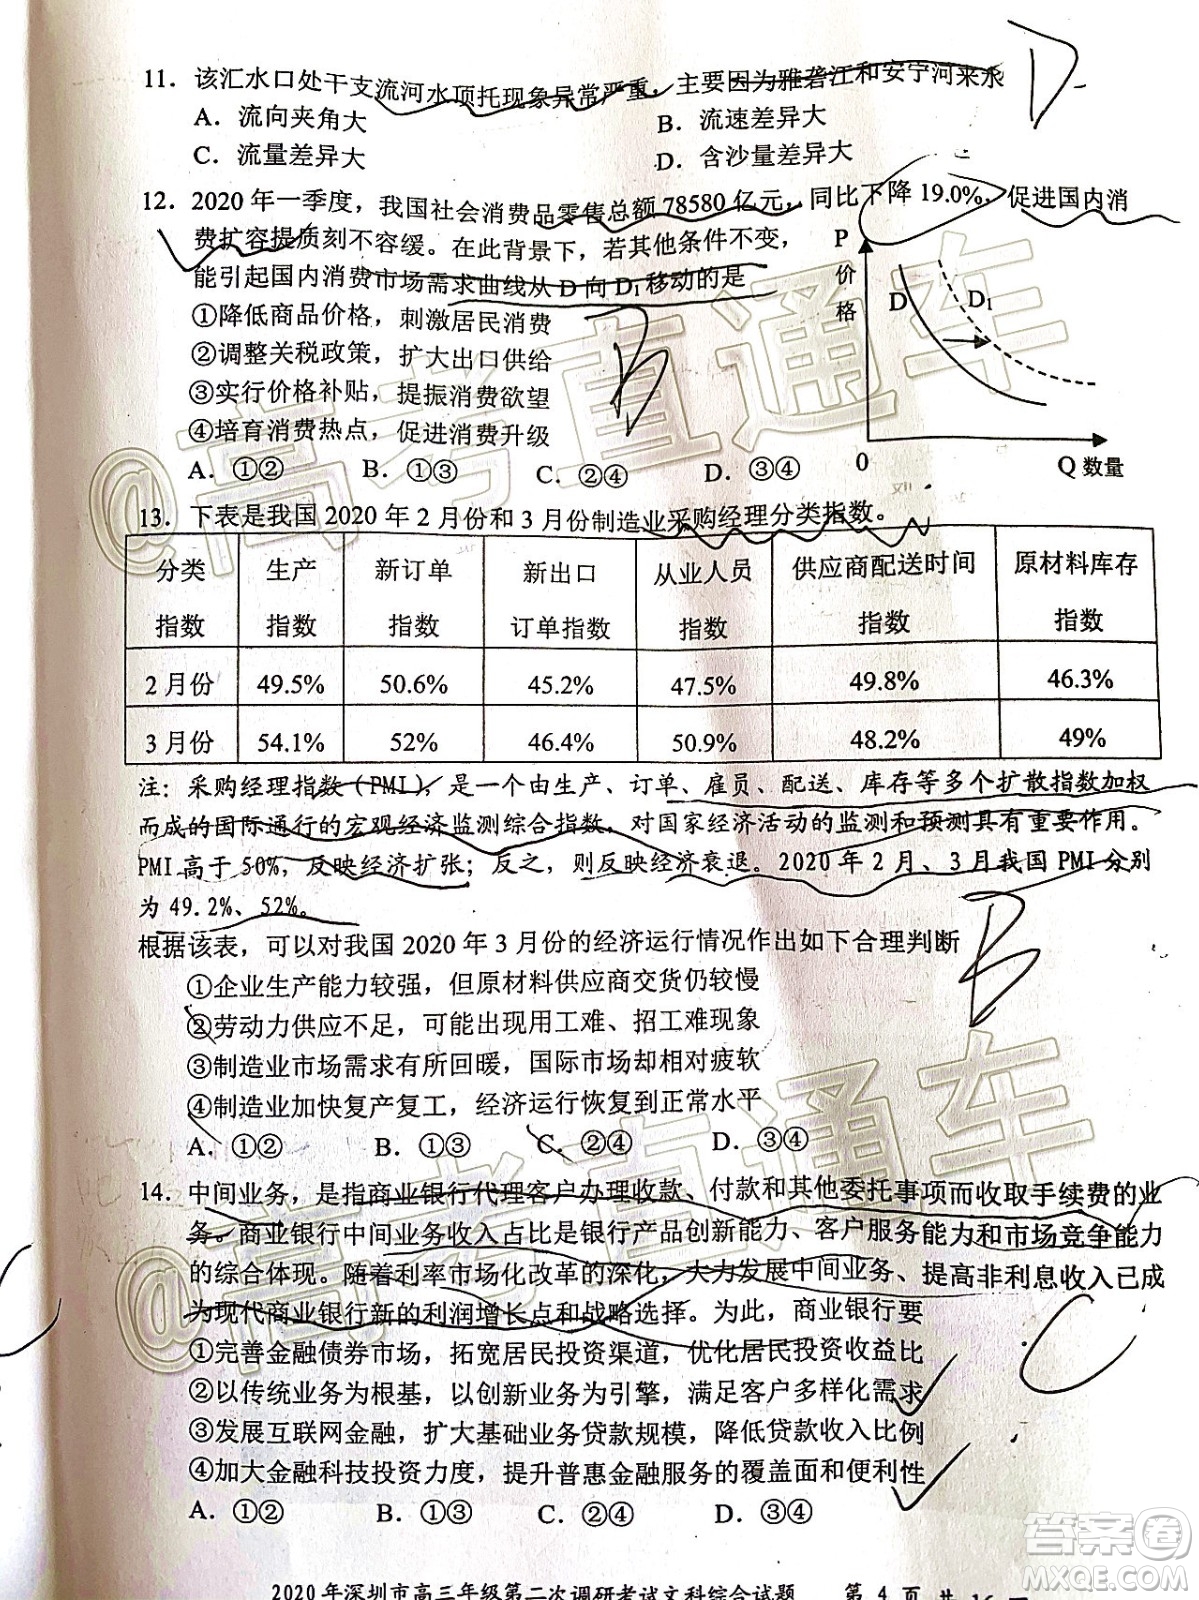 11. 该汇水口处干支流河水顶托现象异常严重，主要因为雅砻江和安宁河来水
A. 流向夹角大
B. 流速差异大
C. 流量差异大
D. 含沙量差异大
D
12. 2020年一季度，我国社会消费品零售总额78580亿元，同比下降19.0%，促进国内消
费扩容提质刻不容缓。在此背景下，若其他条件不变，
能引起国内消费市场需求曲线从D向D₁移动的是
①降低商品价格，刺激居民消费
②调整关税政策，扩大出口供给
③实行价格补贴，提振消费欲望
④培育消费热点，促进消费升级
A. ①② B. ①③ C. ②④ D. ③④
P
价
格
D
D₁
0
Q 数量
B
13. 下表是我国2020年2月份和3月份制造业采购经理分类指数。
分类指数 生产指数 新订单指数 新出口订单指数 从业人员指数 供应商配送时间指数 原材料库存指数
2月份 49.5% 50.6% 45.2% 47.5% 49.8% 46.3%
3月份 54.1% 52% 46.4% 50.9% 48.2% 49%
注：采购经理指数（PMI），是一个由生产、订单、雇员、配送、库存等多个扩散指数加权
而成的国际通行的宏观经济监测综合指数，对国家经济活动的监测和预测具有重要作用。
PMI高于50%，反映经济扩张；反之，则反映经济衰退。2020年2月、3月我国PMI分别
为49.2%、52%。
根据该表，可以对我国2020年3月份的经济运行情况作出如下合理判断
①企业生产能力较强，但原材料供应商交货仍较慢
②劳动力供应不足，可能出现用工难、招工难现象
③制造业市场需求有所回暖，国际市场却相对疲软
④制造业加快复产复工，经济运行恢复到正常水平
A. ①② B. ①③ C. ②④ D. ③④
B
14. 中间业务，是指商业银行代理客户办理收款、付款和其他委托事项而收取手续费的业
务。商业银行中间业务收入占比是银行产品创新能力、客户服务能力和市场竞争能力
的综合体现。随着利率市场化改革的深化，大力发展中间业务、提高非利息收入已成
为现代商业银行新的利润增长点和战略选择。为此，商业银行要
①完善金融债券市场，拓宽居民投资渠道，优化居民投资收益比
②以传统业务为根基，以创新业务为引擎，满足客户多样化需求
③发展互联网金融，扩大基础业务贷款规模，降低贷款收入比例
④加大金融科技投资力度，提升普惠金融服务的覆盖面和便利性
A. ①② B. ①③ C. ②④ D. ③④
C
2020年深圳市高三年级第二次调研考试文科综合试题 第 4 页 共 16
@高考直通车
@高考直通车
答案圈
MXQE.COM